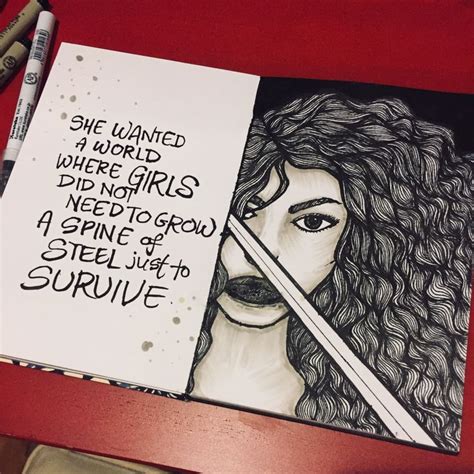 SHE WANTED
A WORLD
WHERE GIRLS
DID NOT
NEED TO GROW
A SPINE of
STEEL just to
SURVIVE.